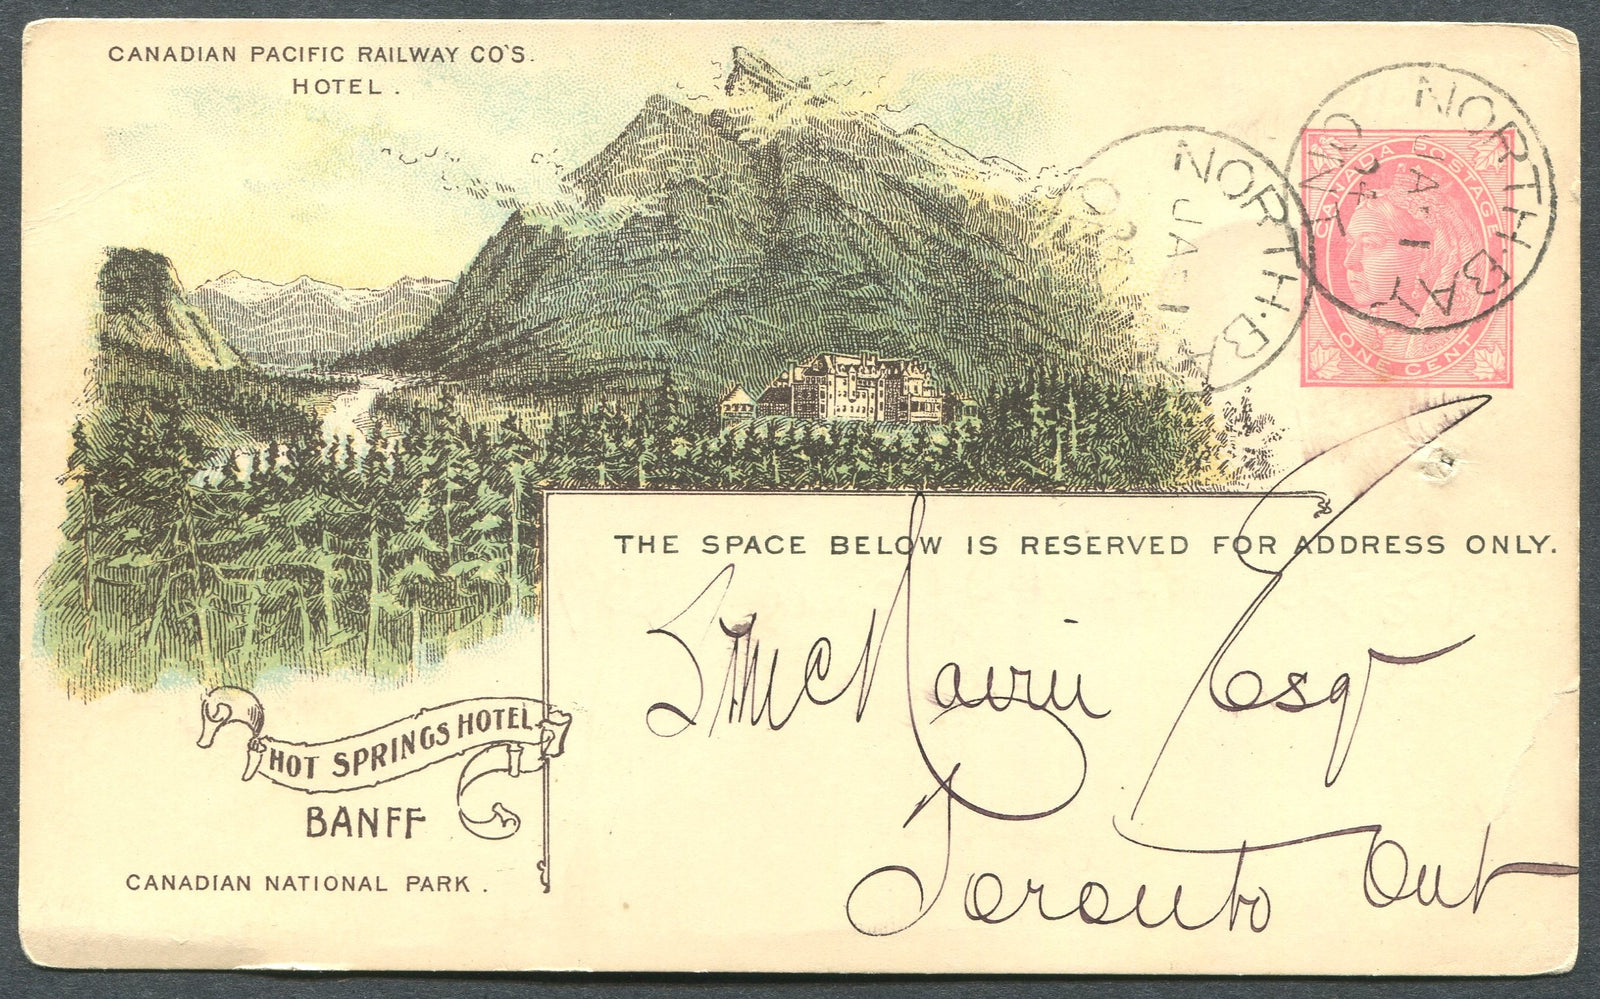 CANADIAN PACIFIC RAILWAY CO'S.
HOTEL.
NORTH·BAY
JA·1
ONT
NORTH·BA
JA·1
CANADA POSTAGE
ONE CENT
THE SPACE BELOW IS RESERVED FOR ADDRESS ONLY.
McNairn Esqr
Toronto Ont
HOT SPRINGS HOTEL
BANFF
CANADIAN NATIONAL PARK.